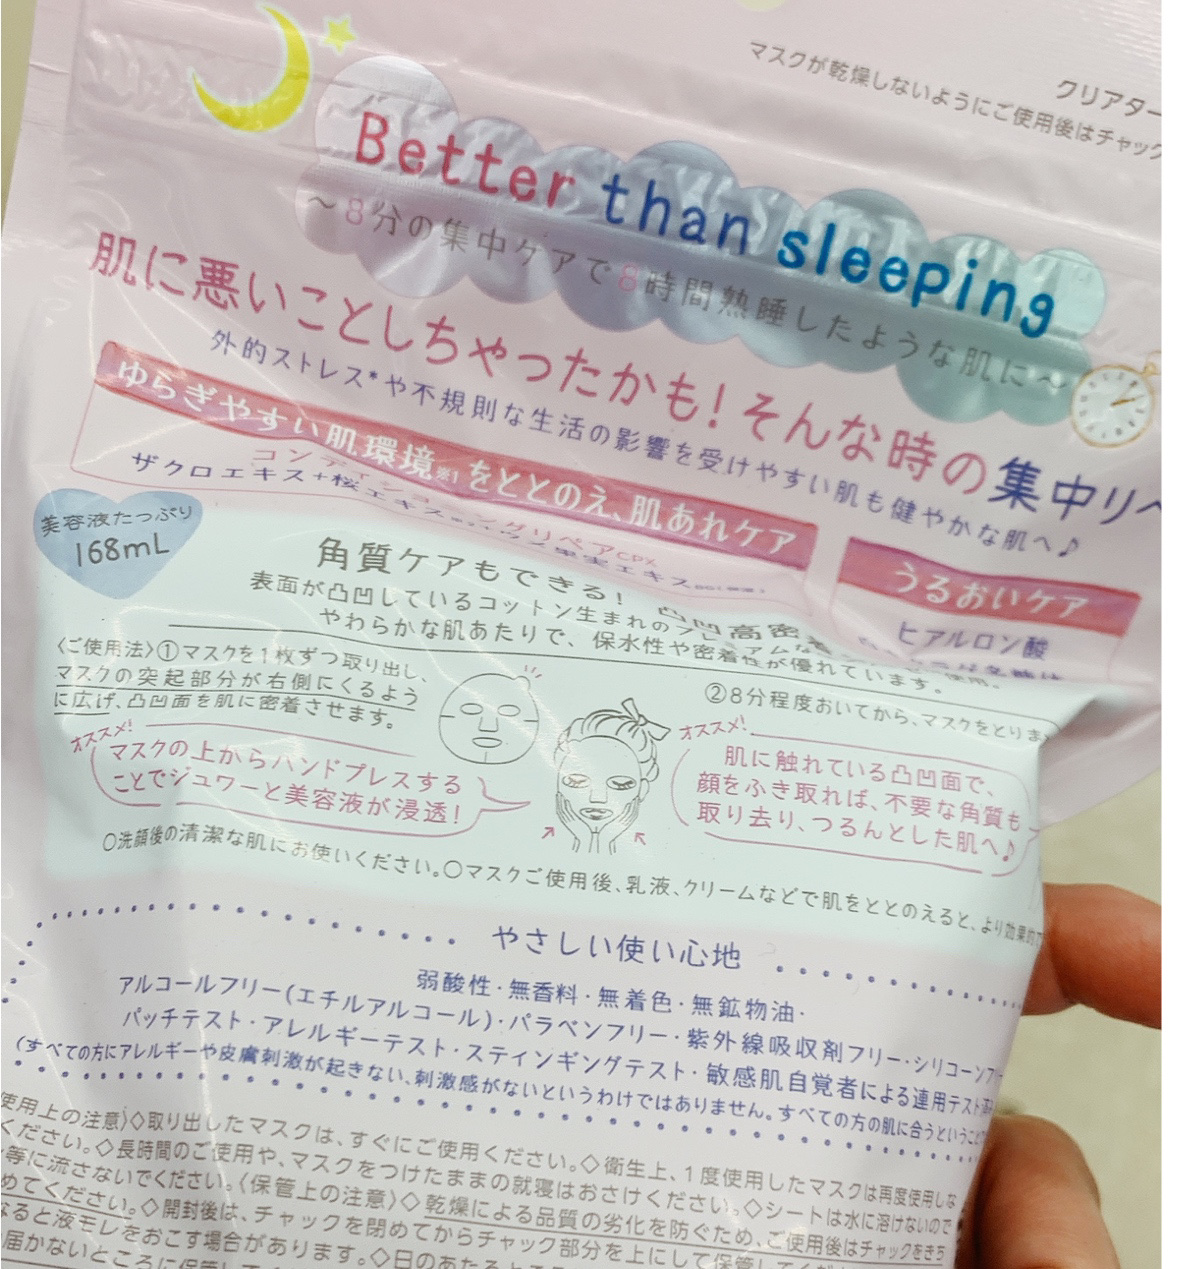 クリアター
マスクが乾燥しないようにご使用後はチャック
Better than sleeping
～8分の集中ケアで8時間熟睡したような肌に～
肌に悪いことしちゃったかも！そんな時の集中リペ
外的ストレス*や不規則な生活の影響を受けやすい肌も健やかな肌へ♪
ゆらぎやすい肌環境※1をととのえ、肌あれケア
コンディショニングリペアCPX
ザクロエキス+桜エキス
果実エキス
うるおいケア
ヒアルロン酸
美容液たっぷり
168mL
角質ケアもできる！ 凸凹高密着
表面が凸凹しているコットン生まれのプレミアムな
使用。
やわらかな肌あたりで、保水性や密着性が優れています。
〈ご使用法〉①マスクを1枚ずつ取り出し、
マスクの突起部分が右側にくるよう
に広げ、凸凹面を肌に密着させます。
オススメ！
マスクの上からハンドプレスする
ことでジュワーと美容液が浸透！
②8分程度おいてから、マスクをとりま
オススメ！
肌に触れている凸凹面で、
顔をふき取れば、不要な角質も
取り去り、つるんとした肌へ♪
○洗顔後の清潔な肌にお使いください。○マスクご使用後、乳液、クリームなどで肌をととのえると、より効果的で
やさしい使い心地
弱酸性・無香料・無着色・無鉱物油・
アルコールフリー(エチルアルコール)・パラベンフリー・紫外線吸収剤フリー・シリコーンフ
パッチテスト・アレルギーテスト・スティンギングテスト・敏感肌自覚者による連用テスト済み
(すべての方にアレルギーや皮膚刺激が起きない、刺激感がないというわけではありません。すべての方の肌に合うということ
使用上の注意〉◇取り出したマスクは、すぐにご使用ください。◇衛生上、1度使用したマスクは再度使用しな
ください。◇長時間のご使用や、マスクをつけたままの就寝はおさけください。◇シートは水に溶けないので
等に流さないでください。〈保管上の注意〉◇乾燥による品質の劣化を防ぐため、ご使用後はチャックをきち
めてください。◇開封後は、チャックを閉めてからチャック部分を上にして保管してくだ
なると液モレをおこす場合があります。◇日のあたるところ
届かないところに保管して